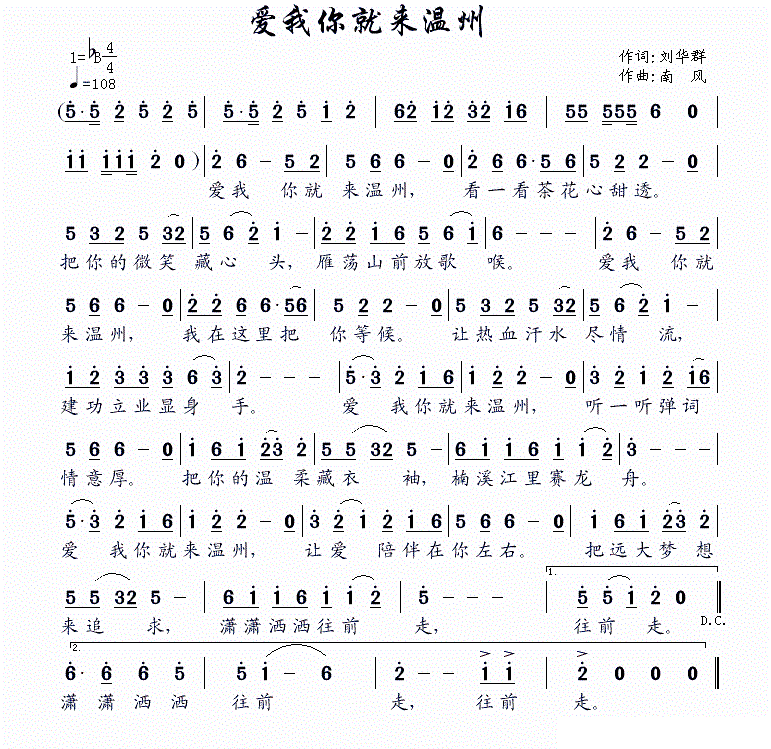 爱我你就来温州
1=♭B 4/4
♩=108
作词:刘华群
作曲:南 风
(5·5 2 5 2 5 | 5·5 2 5 1 2 | 62 12 32 16 | 55 555 6 0
11 111 2 0 ) | 2 6 - 52 | 5 6 6 - 0 | 2 6 6·5 6 | 5 2 2 - 0
爱我 你就 来温州, 看一看茶花心甜透。
5 3 2 5 32 | 5 6 2 1 - | 2 2 1 6 5 6 1 | 6 - - - | 2 6 - 5 2
把你的微笑 藏心 头,雁荡山前放歌 喉。 爱我 你就
5 6 6 - 0 | 2 2 6 6·56 | 5 2 2 - 0 | 5 3 2 5 32 | 5 6 2 1 -
来温州, 我在这里把 你等候。 让热血汗水 尽情 流,
1 2 3 3 6 3 | 2 - - - | 5·3 2 1 6 | 1 2 2 - 0 | 3 2 1 2 16
建功立业显身 手。 爱 我你就来温州, 听一听弹词
5 6 6 - 0 | 1 6 1 23 2 | 5 5 32 5 - | 6 1 1 6 1 2 | 3 - - -
情意厚。 把你的温 柔藏衣 袖,楠溪江里赛龙 舟。
5·3 2 1 6 | 1 2 2 - 0 | 3 2 1 2 1 6 | 5 6 6 - 0 | 1 6 1 23 2
爱 我你就来温州, 让爱 陪伴在你左右。 把远大梦 想
5 5 32 5 - | 6 1 1 6 1 1 2 | 5 - - - | 1. 5 5 1 2 0 D.C.
来追 求, 潇潇洒洒往前 走, 往前 走。
2. 6· 6 6 5 | 5 1 - 6 | 2 - - 1 1 | 2 0 0 0
潇 潇洒洒 往前 走, 往前 走。